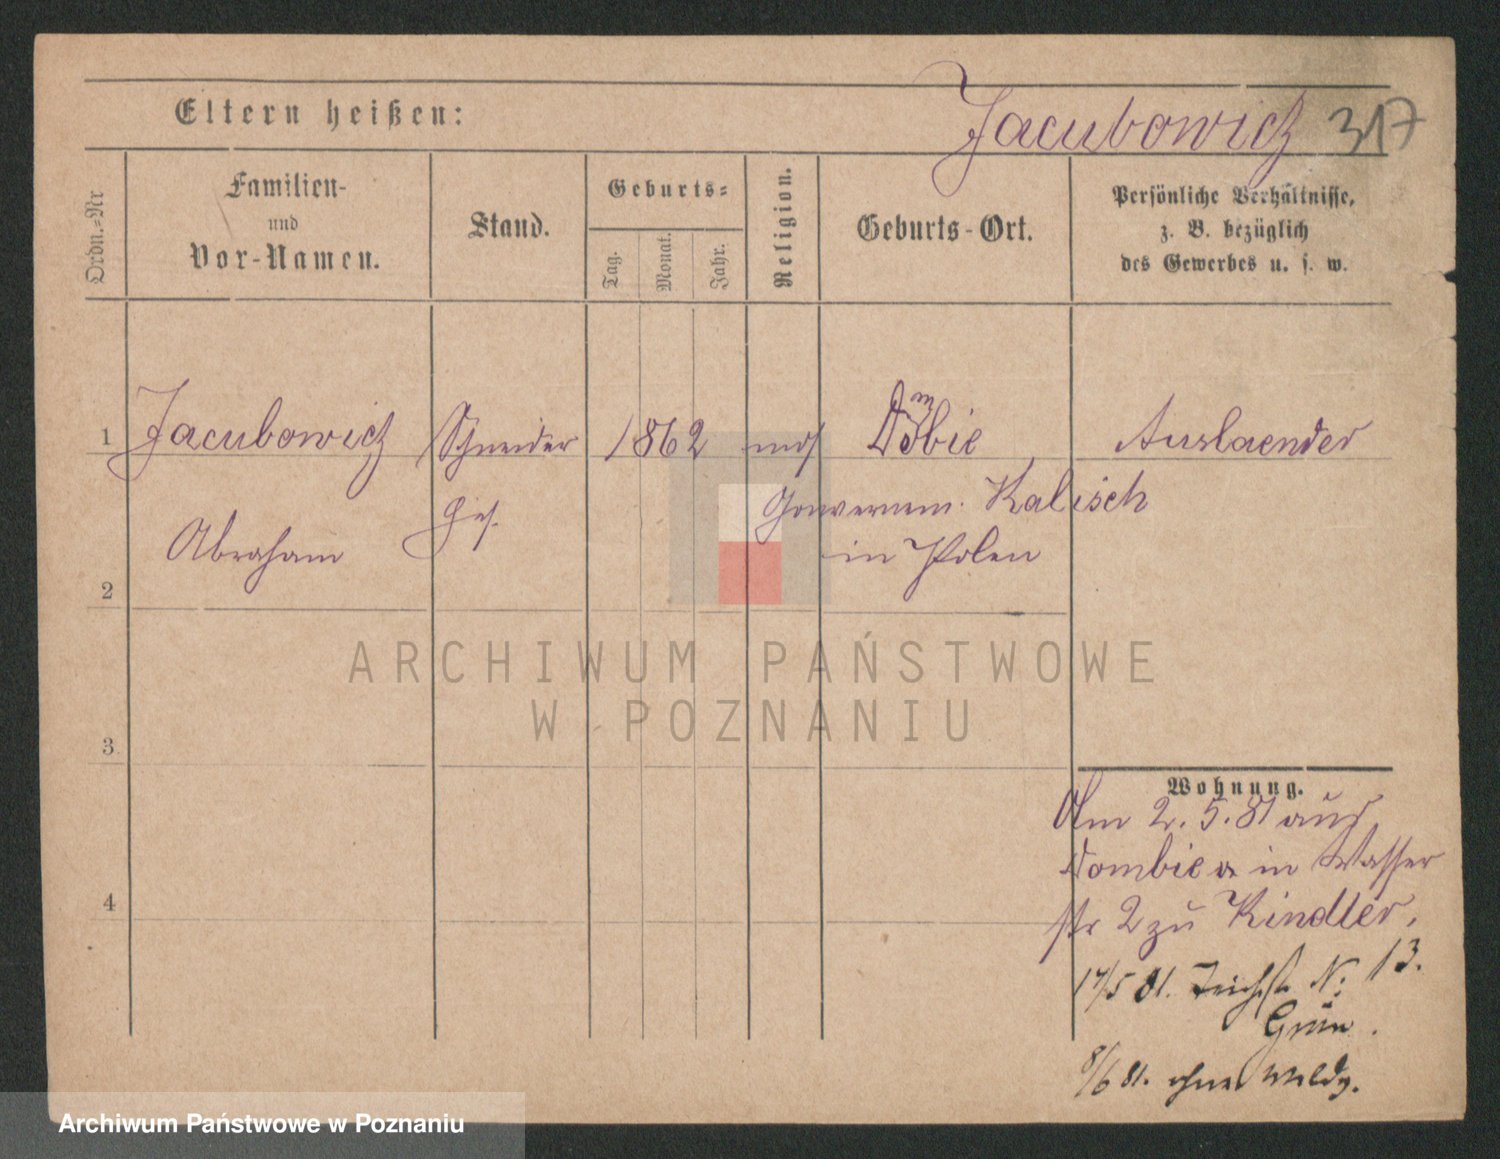 Eltern heißen:
Jacubowicz 317
Ordn.=Nr
Familien-
und
Vor-Namen.
Stand.
Geburts=
Tag.
Monat.
Jahr.
Religion.
Geburts-Ort.
Persönliche Verhältnisse,
z. B. bezüglich
des Gewerbes u. s. w.
1 Jacubowicz Schneider 1862 mos Dombie Auslaender
Ges. Gouvernem. Kalisch
Abraham in Polen
2
3
4
Wohnung.
Am 2. 5. 81 aus
Dombie in Wasser
str 2 zu Kindler.
17/5 81. Teichstr N: 13.
Grün.
8/6 81. ohne Meldg.
ARCHIWUM PAŃSTWOWE
W POZNANIU
Archiwum Państwowe w Poznaniu